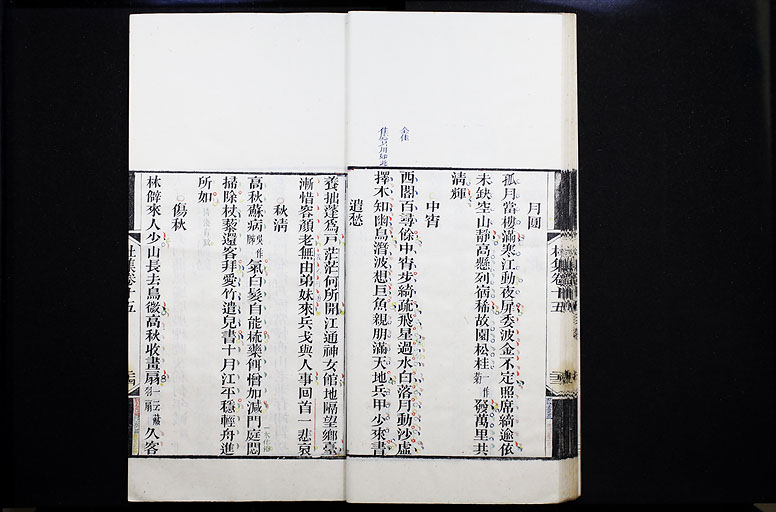 月圓
孤月當樓滿寒江動夜扉委波金不定照席綺逾依
未缺空山靜高懸列宿稀故園松桂 一作菊 發萬里共
清輝
中宵
西閣百尋餘中宵步綺疏飛星過水白落月動沙虛
擇木知幽鳥潛波想巨魚親朋滿天地兵甲少來書
遣愁
養拙蓬為戶茫茫何所開江通神女館地隔望鄉臺
漸惜容顏老無由弟妹來兵戈與人事回首一悲哀
秋清
高秋蘇病 氣白髮自能梳藥餌憎加減門庭悶
掃除杖藜還客拜愛竹遣兒書十月江平穩輕舟進
所如
傷秋
林僻來人少山長去鳥微高秋收畫扇 久客
杜集卷十五
杜集卷十五